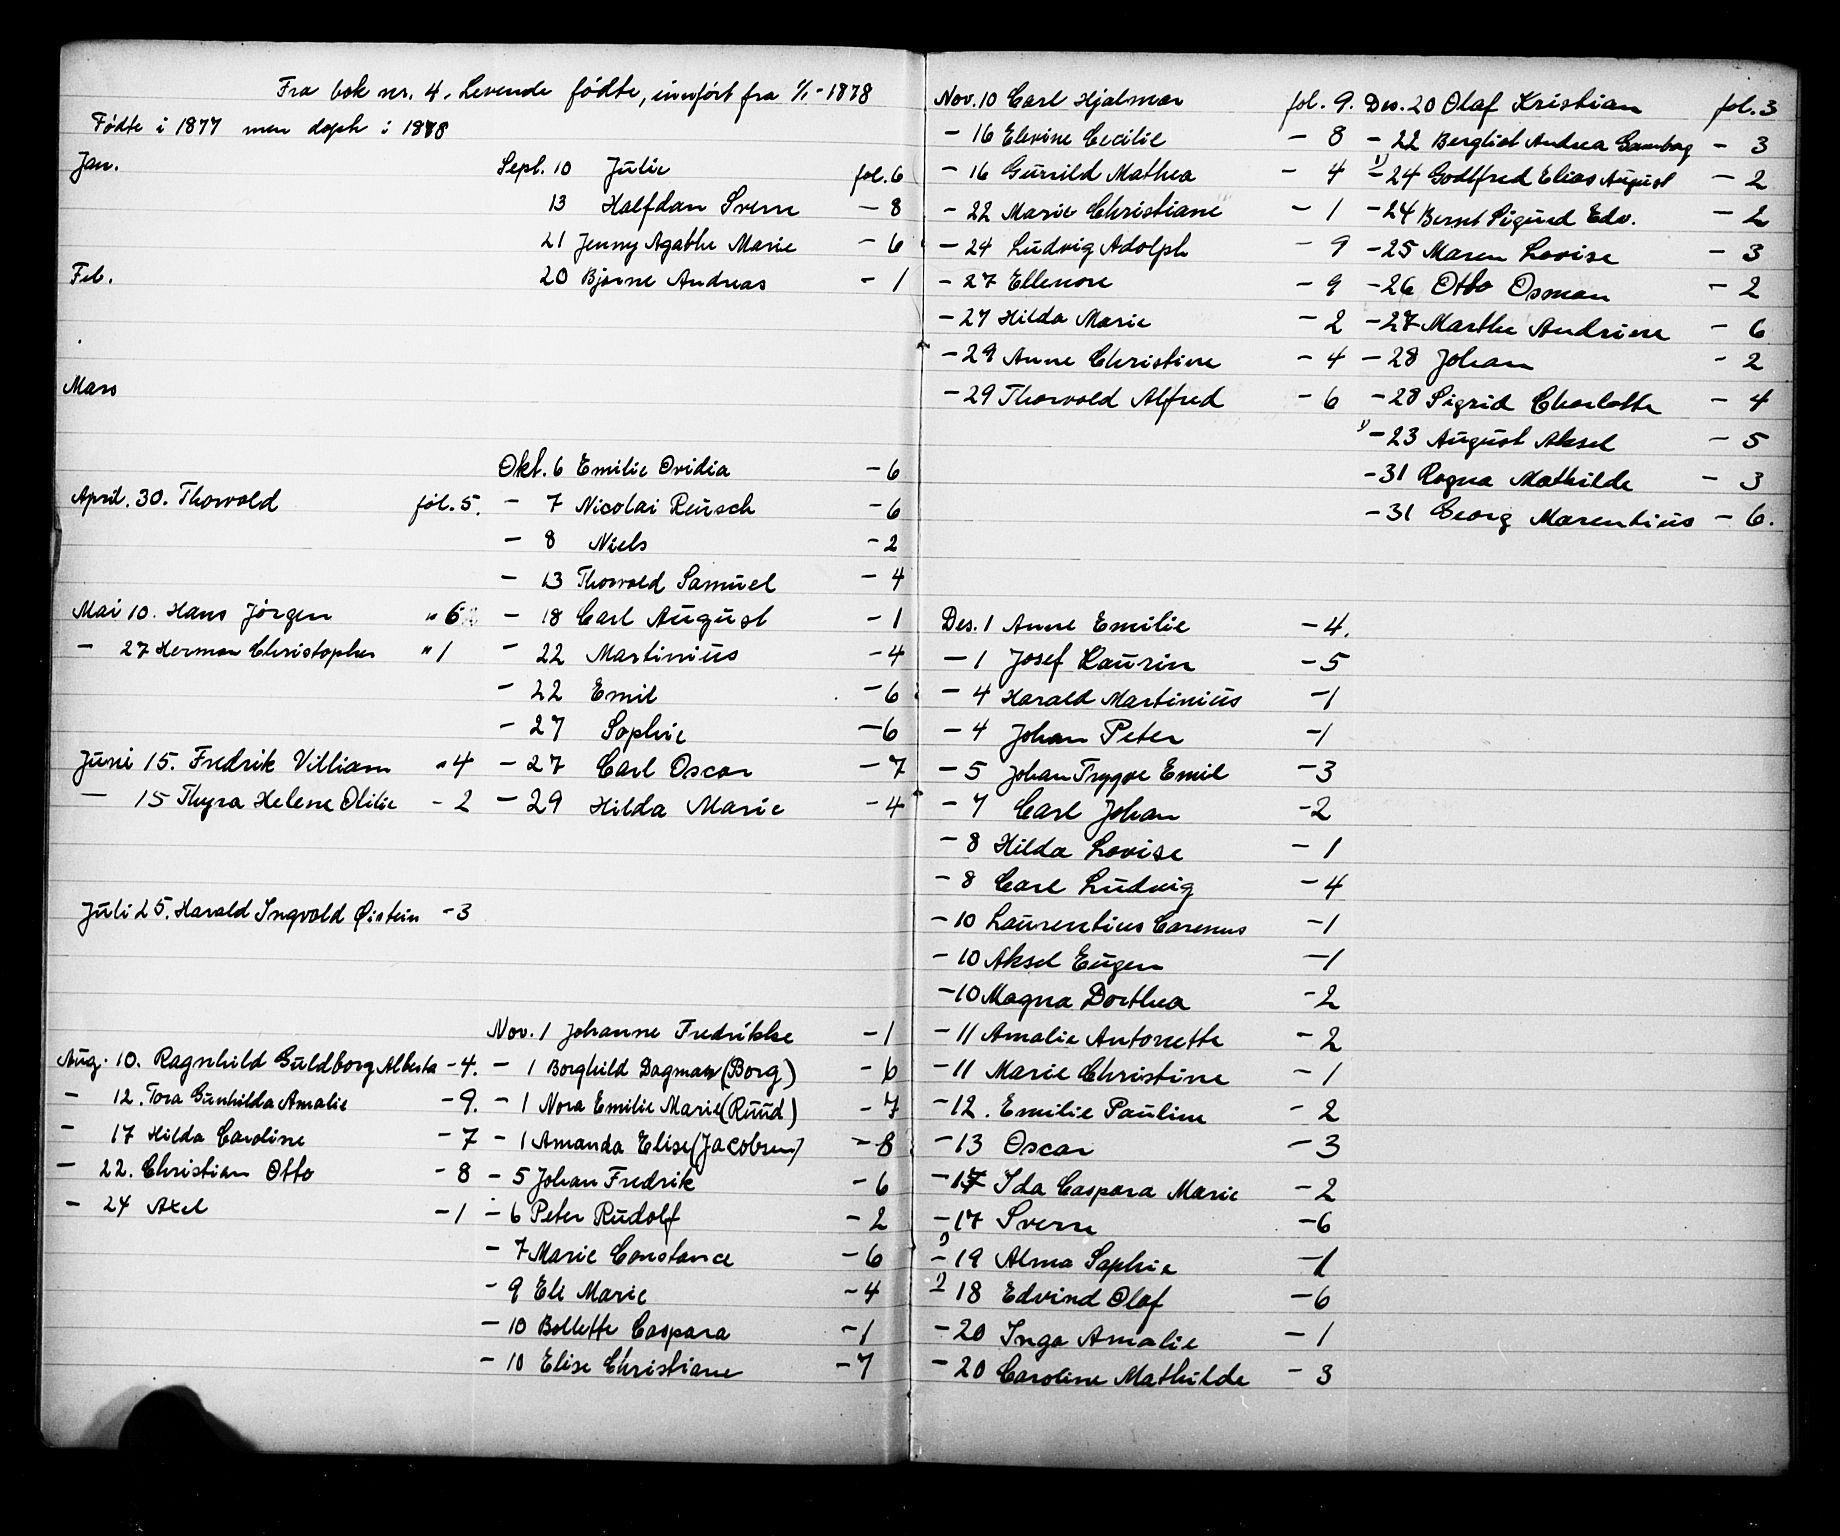 Fra bok nr. 4. Levende fødte, innført fra 1/1-1878
Fødte i 1877 men døpt i 1878
Jan.
Feb.
Mars
April. 30. Thorvald fol. 5.
Mai 10. Hans Jørgen " 6
- 27 Herman Christopher " 1
Juni 15. Fredrik Villiam " 4
- 15 Thyra Helene Otilie - 2
Juli 25. Harald Ingvald Øistein - 3
Aug. 10. Ragnhild Guldborg Alberta - 4.
- 12. Tora Gunhilda Amalie - 9.
- 17 Hilda Caroline - 7
- 22. Christian Otto - 8
- 24 Axel - 1
Sept. 10 Julie fol. 6
13 Halfdan Sverre - 8
21 Jenny Agathe Marie - 6
20 Bjarne Andreas - 1
Okt. 6 Emilie Ovidia - 6
- 7 Nicolai Reusch - 6
- 8 Niels - 2
- 13 Thorvald Samuel - 4
- 18 Carl August - 1
- 22 Martinius - 4
- 22 Emil - 6
- 27 Sophie - 6
- 27 Carl Oscar - 7
- 29 Hilda Marie - 4
Nov. 1 Johanne Fredrikke - 1
- 1 Borghild Dagmar (Borg) - 6
- 1 Nora Emilie Marie (Ruud) - 7
- 1 Amanda Elise (Jacobsen) - 8
- 5 Johan Fredrik - 6
- 6 Peter Rudolf - 2
- 7 Marie Constance - 6
- 9 Eli Marie - 4
- 10 Bollette Caspara - 1
- 10 Elise Christiane - 7
Nov. 10 Carl Hjalmar fol. 9.
- 16 Elevine Cecilie - 8
- 16 Gunild Mathea - 4
- 22 Marie Christiane - 1
- 24 Ludvig Adolph - 9
- 27 Ellenore - 9
- 27 Hilda Marie - 2
- 29 Anne Christine - 4
- 29 Thorvald Alfred - 6
Des. 1 Anne Emilie - 4.
- 1 Josef Laurin - 5
- 4 Harald Martinius - 1
- 4 Johan Peter - 1
- 5 Johan Trygve Emil - 3
- 7 Carl Johan - 2
- 8 Hilda Lovise - 1
- 8 Carl Ludvig - 4
- 10 Laurentius Carenus - 1
- 10 Aksel Eugen - 1
- 10 Magna Dorthea - 2
- 11 Amalie Antonette - 2
- 11 Marie Christine - 1
- 12. Emilie Pauline - 2
- 13 Oscar - 3
- 17 Ida Caspara Marie - 2
- 17 Sverre - 6
1) - 19 Alma Sophie - 1
1) 18 Edvind Olaf - 6
- 20 Inga Amalie - 1
- 20 Caroline Mathilde - 3
Des. 20 Olaf Kristian fol. 3
- 22 Bergliot Andrea - 3
1) - 24 Godtfred Elias August - 2
- 24 Bernt Sigurd Edv. - 2
- 25 Maren Lovise - 3
- 26 Otto Osman - 2
- 27 Marthe Andrine - 6
- 28 Johan - 2
- 28 Sigrid Charlotte - 4
1) - 23 August Aksel - 5
- 31 Ragna Mathilde - 3
- 31 Georg Marentius - 6.